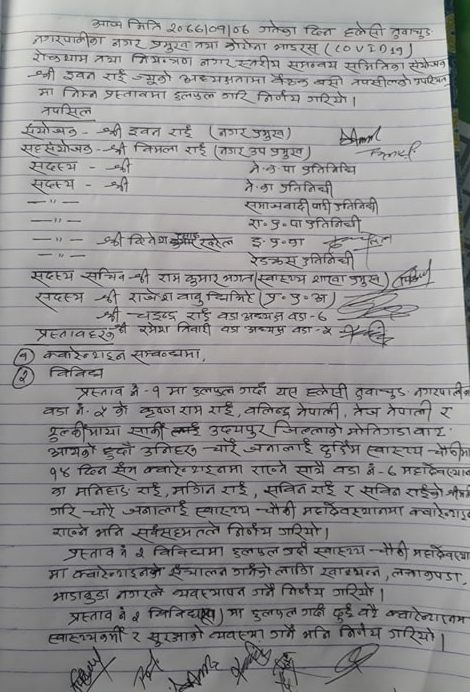 आज मिति २०७७/०१/०६ गतेका दिन हलेसी तुवाचुङ
नगरपालिका नगर प्रमुख तथा कोरोना भाइरस (COVID19)
रोकथाम तथा नियन्त्रण नगर स्तरीय समन्वय समितिका संयोजक
श्री इवन राई ज्यूको अध्यक्षतामा बैठक बसी तपसिलको उपस्थिति
मा निम्न प्रस्तावमा छलफल गरि निर्णय गरियो।
तपसिल
संयोजक - श्री इवन राई (नगर प्रमुख)
सहसंयोजक - श्री विमला राई (नगर उप प्रमुख)
सदस्य - श्री ने.क.पा प्रतिनिधि
सदस्य - श्री ने.का प्रतिनिधी
-"- समाजवादी पार्टी प्रतिनिधी
-"- रा.प्र.पा प्रतिनिधी
-"- श्री कुमार इ.प्र.का
-"- रेडक्रस प्रतिनिधी
सदस्य सचिव - श्री राम कुमार भगत (स्वास्थ्य शाखा प्रमुख)
सदस्य श्री राजेश बाबु घिमिरे (प्र.प्र.अ)
श्री चन्द्र राई वडा अध्यक्ष वडा - ६
प्रस्तावहरु श्री रमेश तिवारी वडा अध्यक्ष वडा - २
१ क्वारेन्टाइन सम्बन्धमा,
२ विविध
प्रस्ताव नं - १ मा छलफल गर्दा यस हलेसी तुवाचुङ नगरपालिका
वडा नं. २ का कृष्ण राम राई, बलिन्द्र नेपाली, तेज नेपाली र
सार्की उदयपुर जिल्लाको बाट
आएको हुदाँ उनिहरु चारै जनालाई दुर्छिम स्वास्थ्य चौकीमा
१४ दिन सम्म क्वारेन्टाइनमा राख्ने साथै वडा नं - ६ महादेवस्थान
का राई, मगिन राई, सविन राई र सविन राईको
गरि चारै जनालाई स्वास्थ्य चौकी महादेवस्थानमा क्वारेन्टाइन
राख्ने भनि सर्वसहमतले निर्णय गरियो।
प्रस्ताव नं २ विविधमा छलफल गर्दा स्वास्थ्य चौकी महादेवस्थान
मा क्वारेन्टाइनको संचालन गर्नको लागि खाद्यान्न, लत्ताकपडा,
भाडाकुडा नगरले व्यवस्थापन गर्ने निर्णय गरियो।
प्रस्ताव नं २ विविध मा छलफल गर्दा दुई वटै क्वारेन्टाइनमा
स्वास्थ्यकर्मी र सुरक्षाको व्यवस्था गर्ने भनि निर्णय गरियो।